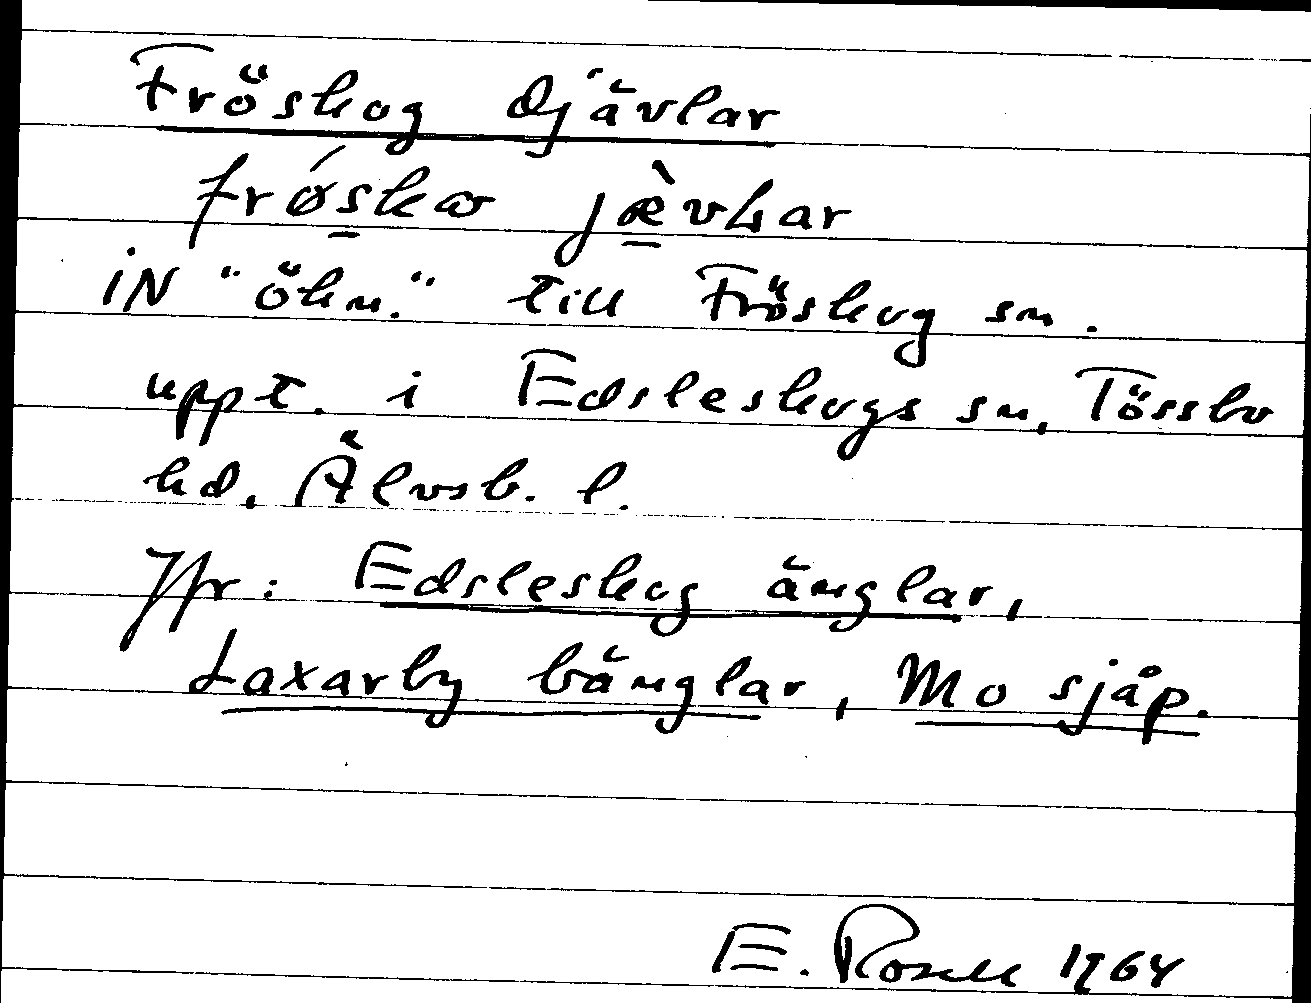 Fröskog djävlar
frǿskω jæ̀vLar
iN "ökn." till Fröskog sn.
uppt. i Edsleskogs sn, Tössbo
hd, Älvsb. l.
Jfr: Edsleskog änglar,
Laxarby bänglar, Mo sjåp.
E. Rosell 1964